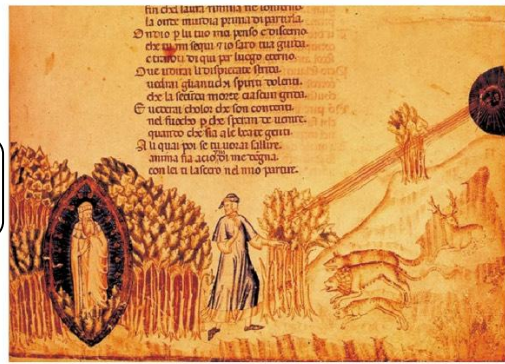 fin che laura
la onde inuidia prima dipartilla.
Ondio p lu tuo me penso e discerno
che tu mi segui ⁊ io saro tua guida
e trarotti di qui per luogo eterno.
Oue udirai li dispietate strida.
uedrai gliantichi spiriti dolenti.
che la secũda morte ciascun grida.
E uederai choloro che son contenti
nel fuocho p che speran de uenire.
quanto che sia a le beate genti.
A li quai poi se tu uorai sallire.
anima fia acio di me degna.
con lei ti lascero nel mio partire.